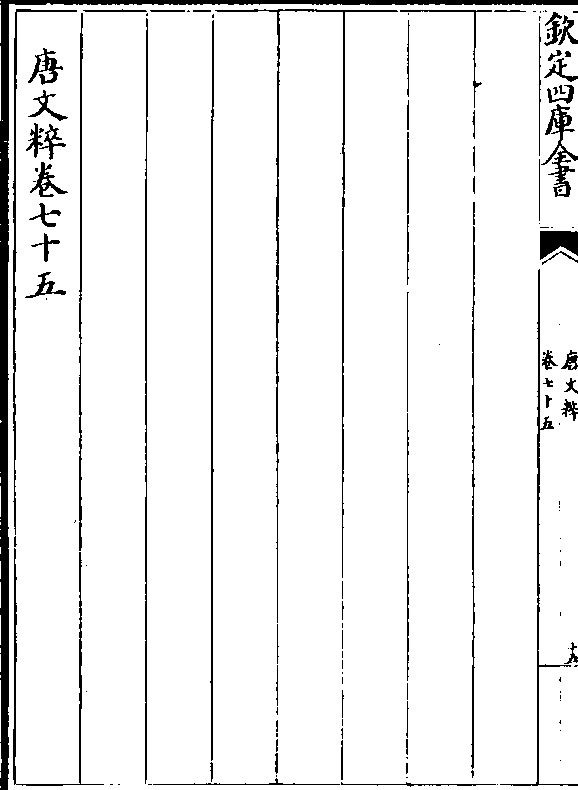 欽定四庫全書
唐文粹
卷七十五
唐文粹卷七十五